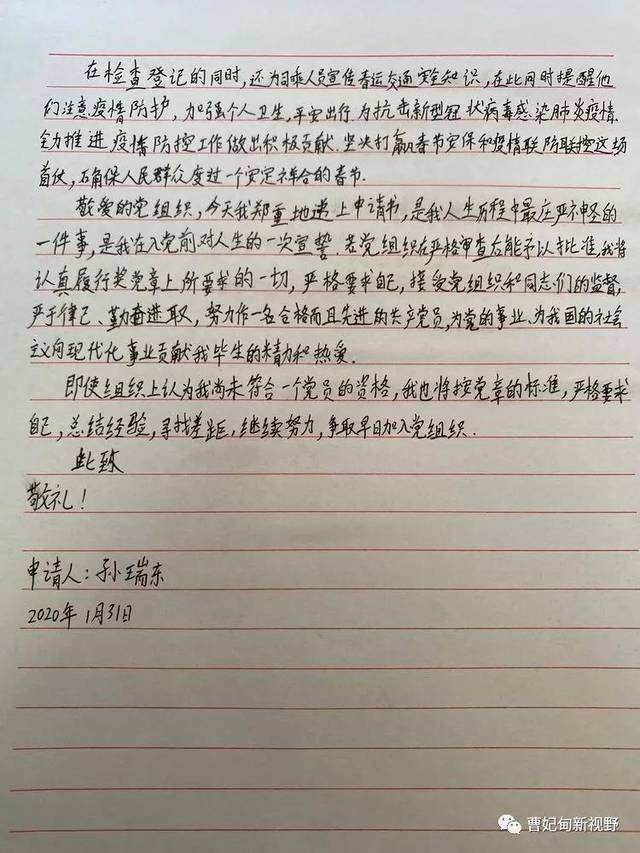 在检查登记的同时,还为司乘人员宣传春运交通安全知识,在此同时提醒他
们注意疫情防护,加强个人卫生,平安出行.为抗击新型冠状病毒感染肺炎疫情
全力推进疫情防控工作做出积极贡献.坚决打赢春节安保和疫情联防联控这场
首仗,确保人民群众度过一个安定祥合的春节.
敬爱的党组织,今天我郑重地递上申请书,是我人生历程中最庄严神圣的
一件事,是我在入党前对人生的一次宣誓.若党组织在严格审查后能予以批准,我将
认真履行奖党章上所要求的一切,严格要求自己,接受党组织和同志们的监督,
严于律己、勤奋进取,努力作一名合格而且先进的共产党员,为党的事业、为我国的社会
主义向现代化事业贡献我毕生的精力和热爱.
即使组织上认为我尚未符合一个党员的资格,我也将按党章的标准,严格要求
自己,总结经验,寻找差距,继续努力,争取早日加入党组织.
此致
敬礼!
申请人:孙瑞东
2020年1月31日
曹妃甸新视野